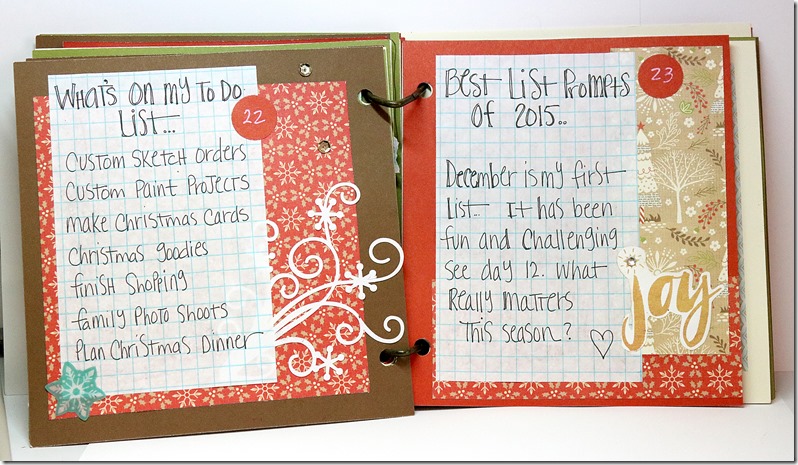 What's on my To Do
List...
22
Custom Sketch Orders
Custom Paint Projects
make Christmas Cards
Christmas goodies
finish Shopping
family Photo Shoots
Plan Christmas Dinner
Best List Prompts
of 2015..
23
December is my first
List... It has been
fun and Challenging
See day 12. What
Really matters
This season?
joy